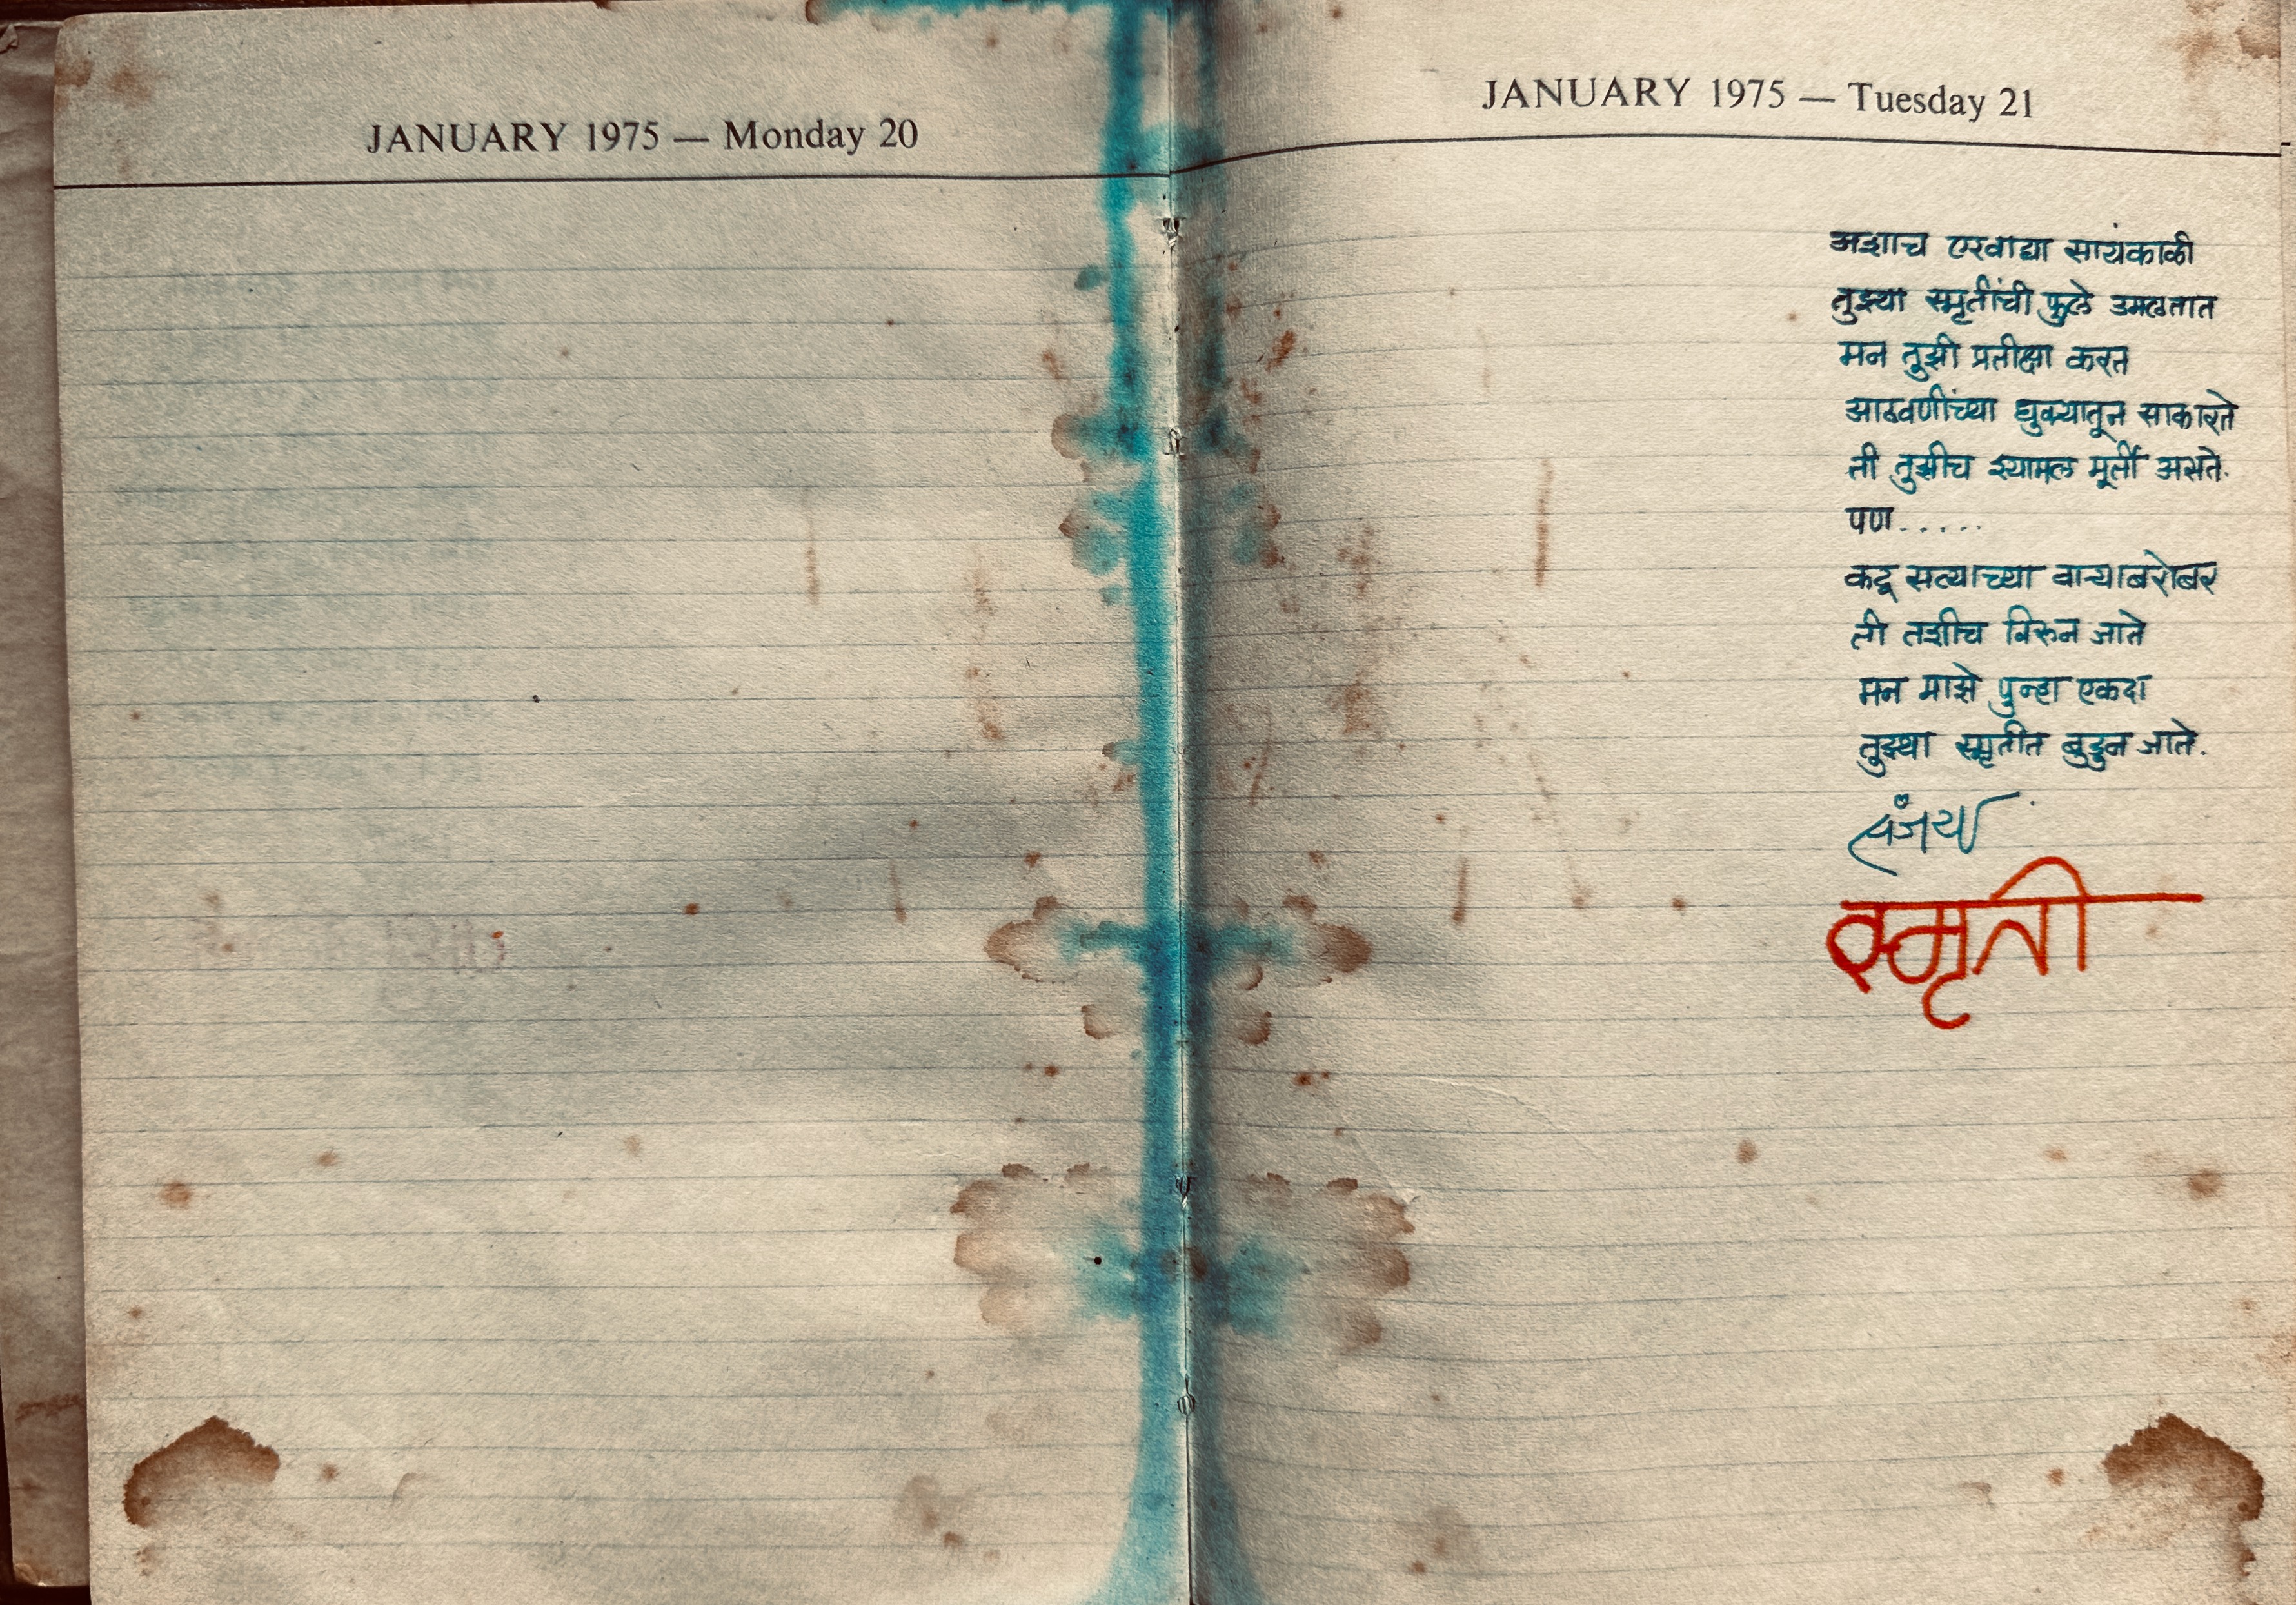 JANUARY 1975 — Monday 20
JANUARY 1975 — Tuesday 21
अशाच एखाद्या सायंकाळी
तुझ्या स्मृतींची फुले उमलतात
मन तुझी प्रतीक्षा करत
आठवणींच्या धुक्यातून साकारते
ती तुझीच श्यामल मूर्ती असते.
पण.....
कटू सत्याच्या वाऱ्याबरोबर
ती तशीच विरून जाते
मन माझे पुन्हा एकदा
तुझ्या स्मृतीत बुडुन जाते.
संजय
स्मृती